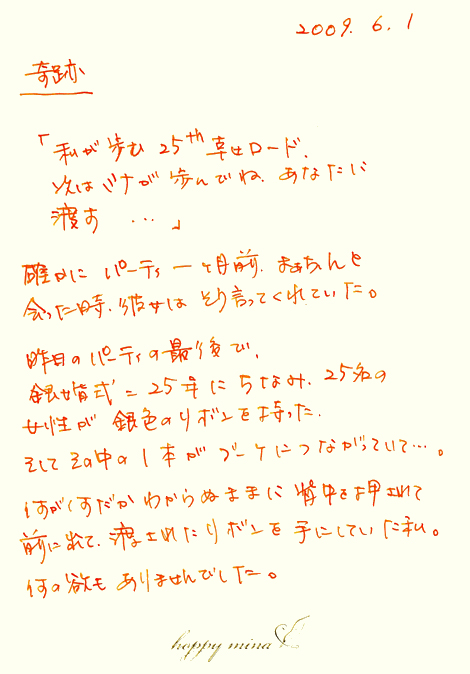 2009. 6. 1
奇跡
「私が歩む 25th 幸せロード、
次はミナが歩んでね。あなたに
渡す …」
確かに パーティ 一ヶ月前、まあちゃんと
会った時、彼女は そう言ってくれていた。
昨日のパーティの最後で、
銀婚式＝25年にちなみ、25名の
女性が 銀色のリボンを持った。
そして その中の1本が ブーケにつながっていて…。
何が何だか わからぬままに 背中を押されて
前に出て、渡されたリボンを 手にしていた私。
何の欲も ありませんでした。
happy mina